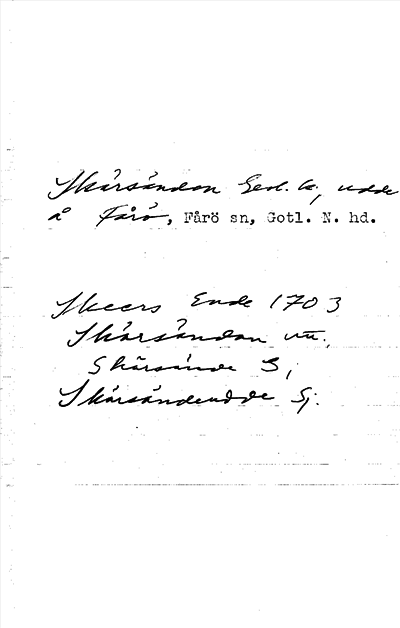 Skärsändan Geol. k., udde
å Fårö, Fårö sn, Gotl. N. hd.
Skeers Ende 1703
Skärsändan
Skärsände S;
Skärsändeudde Sj.